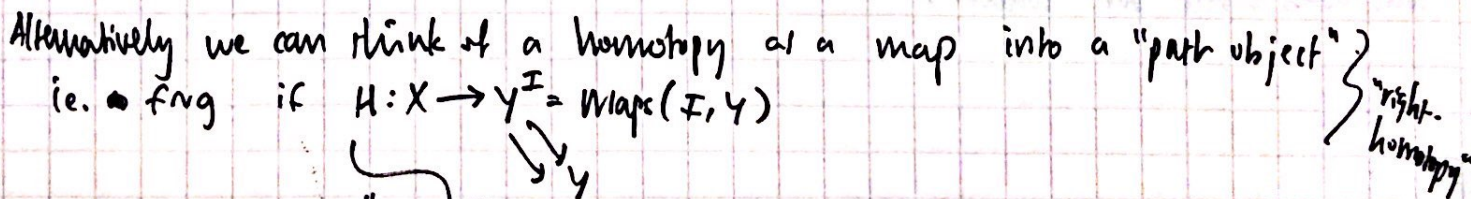 Alternatively we can think of a homotopy as a map into a "path object"
ie. f~g if H: X → Y^I = Maps(I, Y)
Y
"right-
homotopy"